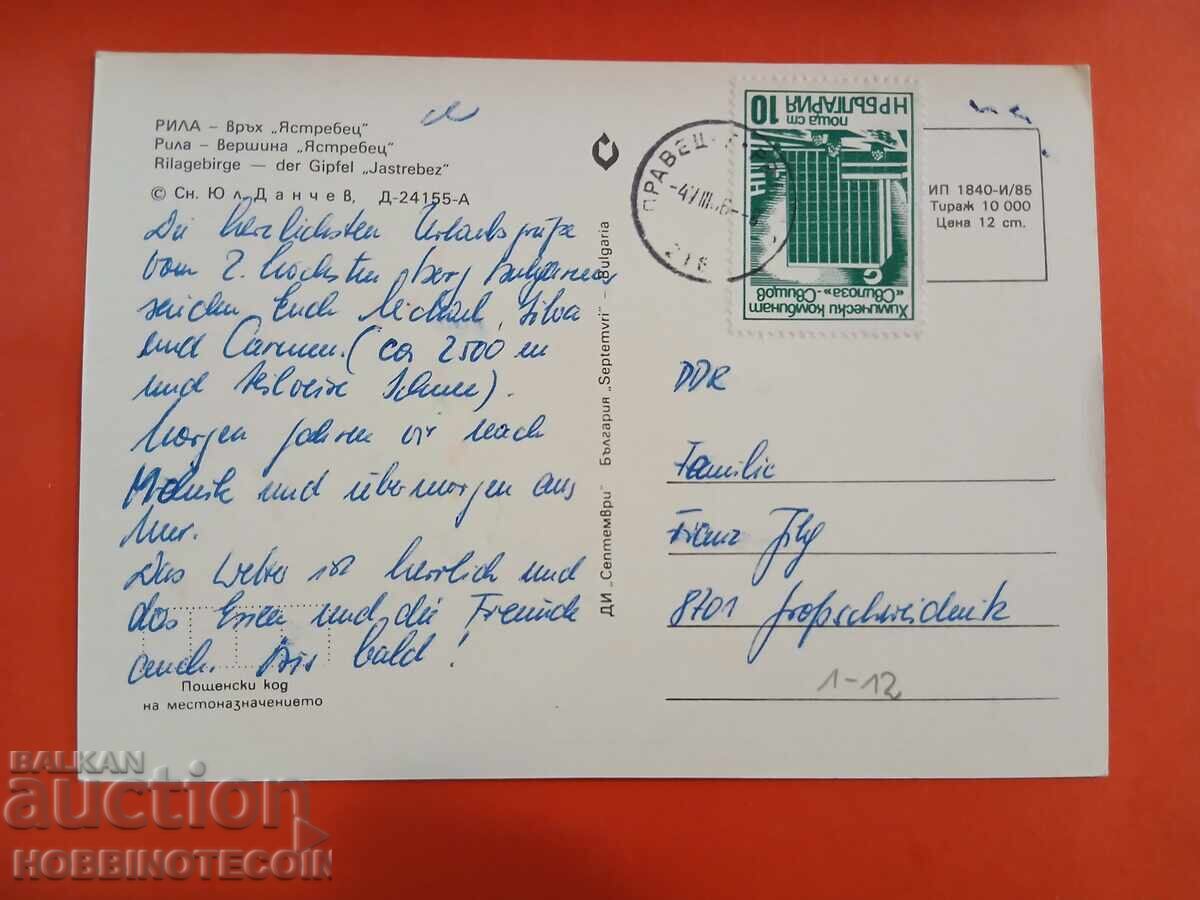 РИЛА – Връх „Ястребец"
Рила – Вершина „Ястребец"
Rilagebirge — der Gipfel „Jastrebez"
© Сн. Юл. Данчев, Д-24155-А
Die herzlichsten Urlaubsgrüße
vom 2. höchsten Berg Bulgariens
senden Euch Michael, Silva
und Carmen. (ca 2500 m
und teilweise Schnee).
Morgen fahren wir nach
Melnik und übermorgen ans
Meer.
Das Wetter ist herrlich und
das Essen und die Freunde
auch. Bis bald!
Пощенски код
на местоназначението
ДИ „Септември" България „Septemvri" – Bulgaria
ПРАВЕЦ
НР БЪЛГАРИЯ
поща ст 10
Химически комбинат
«Свилоза»-Свищов
ИП 1840-И/85
Тираж 10 000
Цена 12 ст.
DDR
Familie
Franz Jlg
8701 Großschweidnitz
1-12
BALKAN
auction
HOBBINOTECOIN